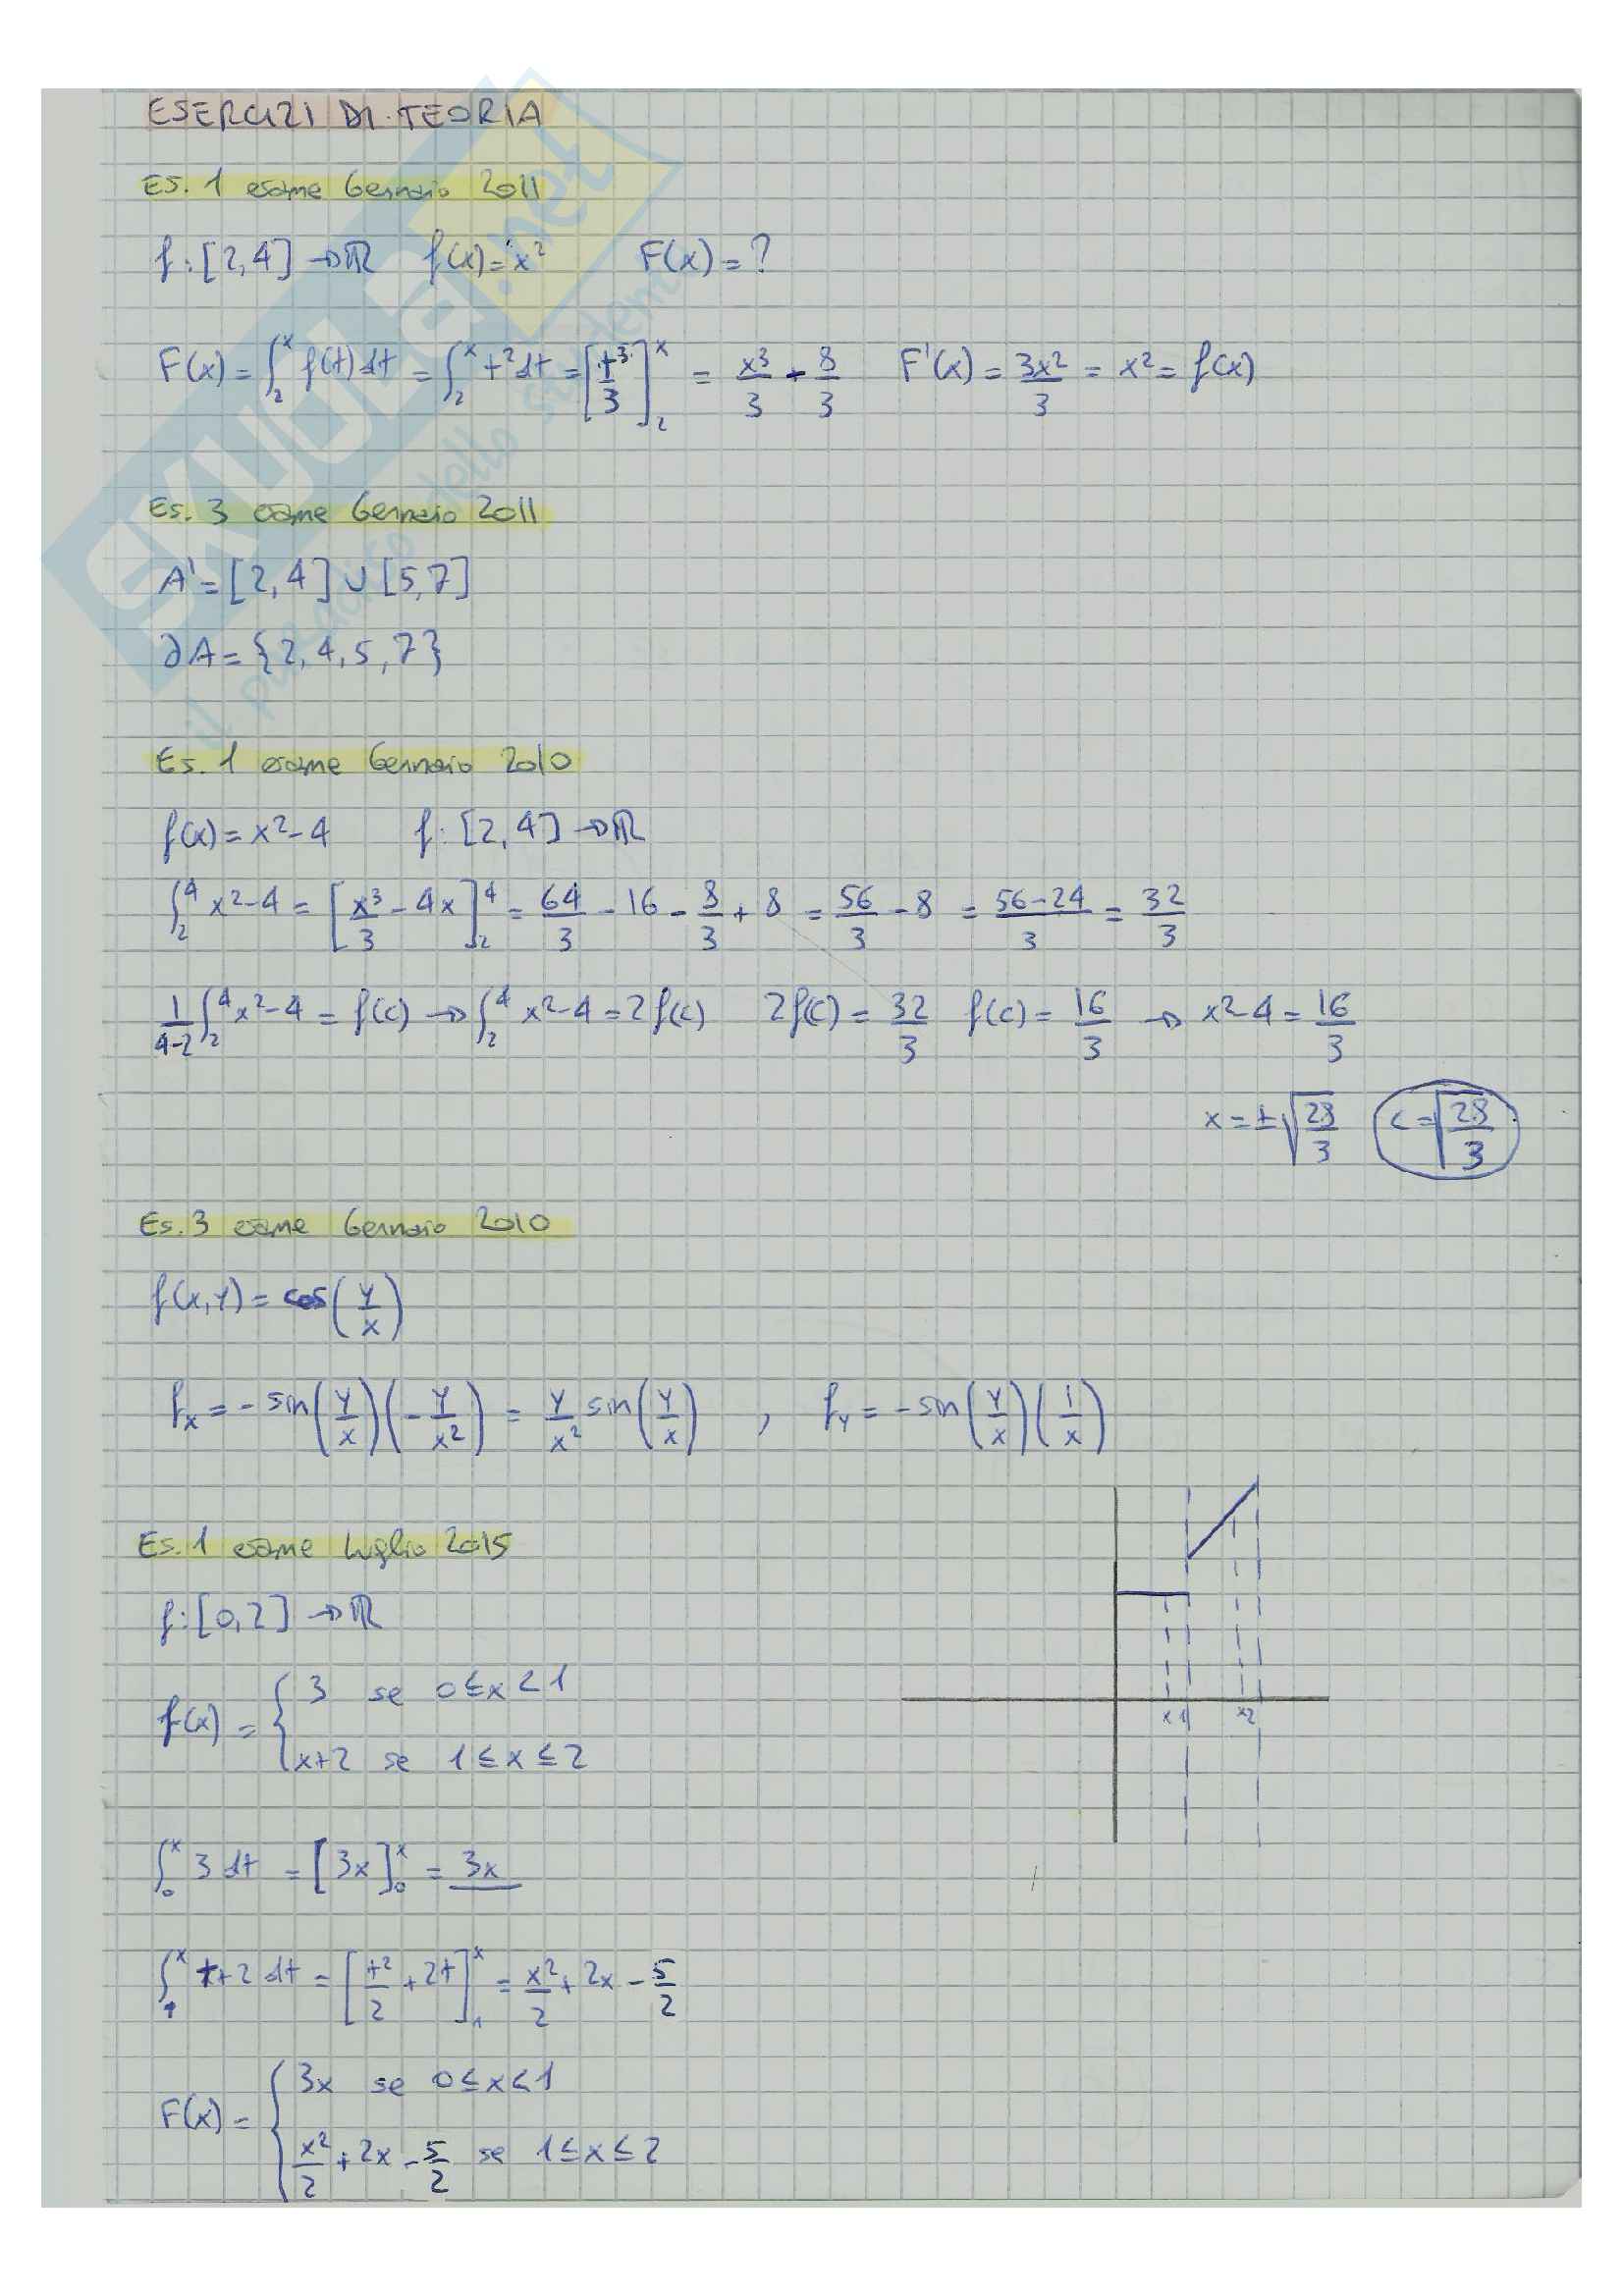 ESERCIZI DI TEORIA
Es. 1 esame Gennaio 2011
f: [2,4] → ℝ f(x) = x² F(x) = ?
F(x) = ∫₂ˣ f(t) dt = ∫₂ˣ t² dt = [t³/3]₂ˣ = x³/3 - 8/3 F'(x) = 3x²/3 = x² = f(x)
Es. 3 esame Gennaio 2011
A' = [2,4] ∪ [5,7]
∂A = {2, 4, 5, 7}
Es. 1 esame Gennaio 2010
f(x) = x² - 4 f: [2,4] → ℝ
∫₂⁴ x² - 4 = [x³/3 - 4x]₂⁴ = 64/3 - 16 - 8/3 + 8 = 56/3 - 8 = (56-24)/3 = 32/3
1/(4-2) ∫₂⁴ x² - 4 = f(c) → ∫₂⁴ x² - 4 = 2f(c) 2f(c) = 32/3 f(c) = 16/3 → x² - 4 = 16/3
x = ±√(28/3) c = √(28/3)
Es. 3 esame Gennaio 2010
f(x,y) = cos(y/x)
fx = - sin(y/x)(-y/x²) = y/x² sin(y/x) , fy = - sin(y/x)(1/x)
Es. 1 esame Luglio 2015
f: [0,2] → ℝ
f(x) = { 3 se 0 ≤ x < 1
x+2 se 1 ≤ x ≤ 2
x1 x2
∫₀ˣ 3 dt = [3x]₀ˣ = 3x
∫₁ˣ t+2 dt = [t²/2 + 2t]₁ˣ = x²/2 + 2x - 5/2
F(x) = { 3x se 0 ≤ x < 1
x²/2 + 2x - 5/2 se 1 ≤ x ≤ 2
SKUOLA.net
il paradiso dello studente